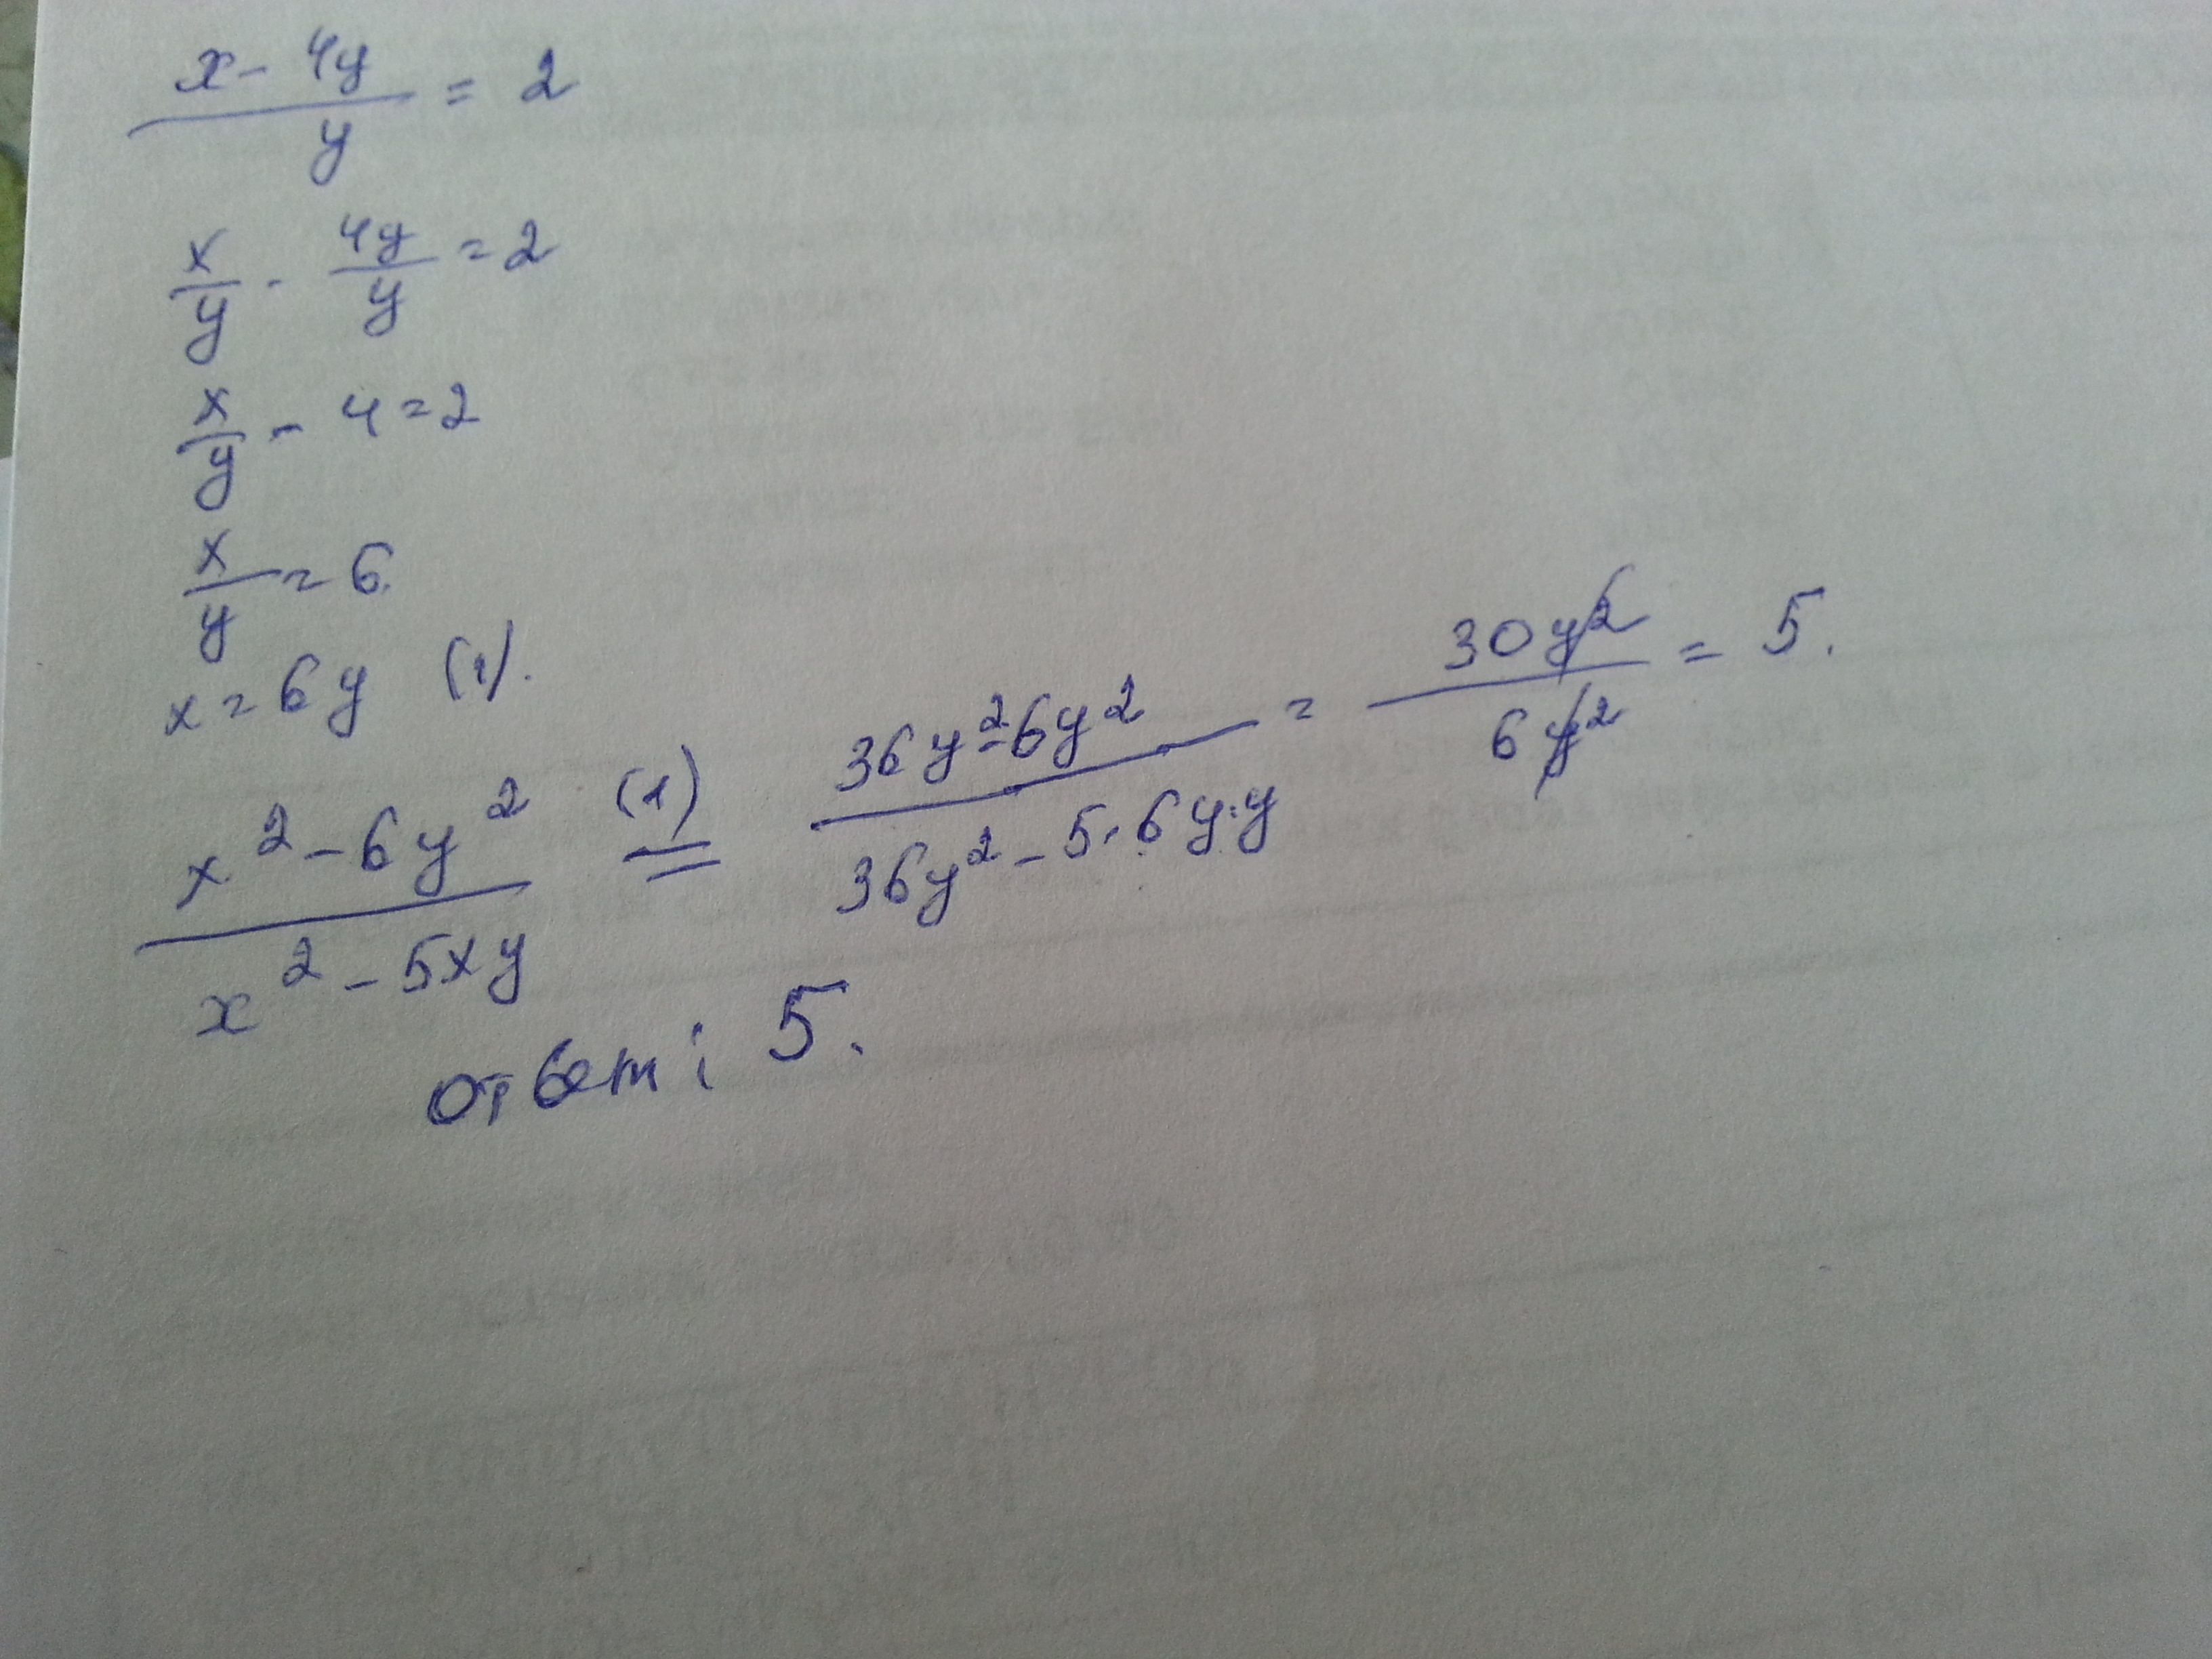 (x - 4y)/y = 2
x/y - 4y/y = 2
x/y - 4 = 2
x/y = 6.
x = 6y (1).
(x² - 6y²)/(x² - 5xy) (1)= (36y² - 6y²)/(36y² - 5·6y·y) = 30y²/6y² = 5.
ответ: 5.